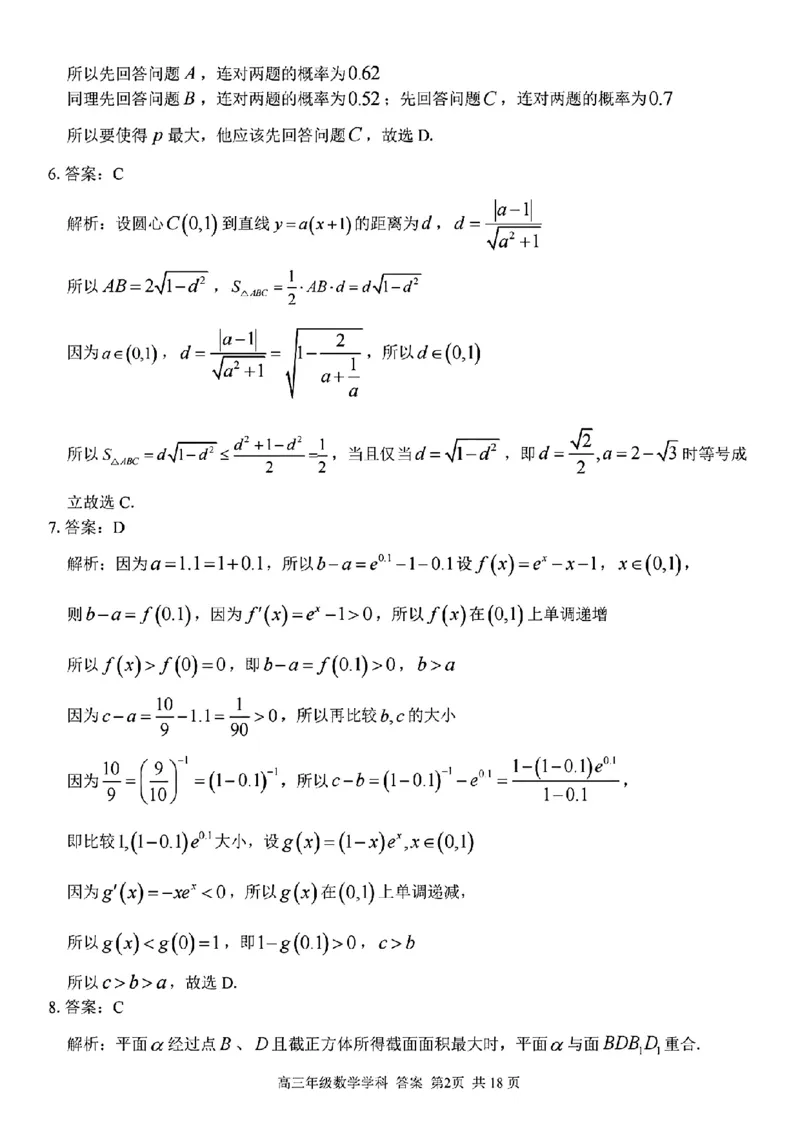 所以先回答问题 A，连对两题的概率为0.62
同理先回答问题 B，连对两题的概率为0.52；先回答问题C，连对两题的概率为0.7
所以要使得 p 最大，他应该先回答问题C，故选 D.
6. 答案：C
解析：设圆心C(0,1)到直线 y=a(x+1)的距离为d，d=|a-1|/√(a²+1)
所以AB=2√(1-d²)，S△ABC=1/2·AB·d=d√(1-d²)
因为a∈(0,1)，d=|a-1|/√(a²+1)=√(1-2/(a+1/a))，所以d∈(0,1)
所以S△ABC=d√(1-d²)≤(d²+1-d²)/2=1/2，当且仅当d=√(1-d²)，即d=√2/2,a=2-√3时等号成
立故选 C.
7. 答案：D
解析：因为a=1.1=1+0.1，所以b-a=e^0.1-1-0.1设f(x)=e^x-x-1，x∈(0,1)，
则b-a=f(0.1)，因为f′(x)=e^x-1>0，所以f(x)在(0,1)上单调递增
所以f(x)>f(0)=0，即b-a=f(0.1)>0，b>a
因为c-a=10/9-1.1=1/90>0，所以再比较b,c的大小
因为10/9=(9/10)^-1=(1-0.1)^-1，所以c-b=(1-0.1)^-1-e^0.1=(1-(1-0.1)e^0.1)/(1-0.1)，
即比较1,(1-0.1)e^0.1大小，设g(x)=(1-x)e^x,x∈(0,1)
因为g′(x)=-xe^x<0，所以g(x)在(0,1)上单调递减，
所以g(x)<g(0)=1，即1-g(0.1)>0，c>b
所以c>b>a，故选 D.
8. 答案：C
解析：平面α经过点B、D且截正方体所得截面面积最大时，平面α与面BDB₁D₁重合.
高三年级数学学科 答案 第2页 共 18 页